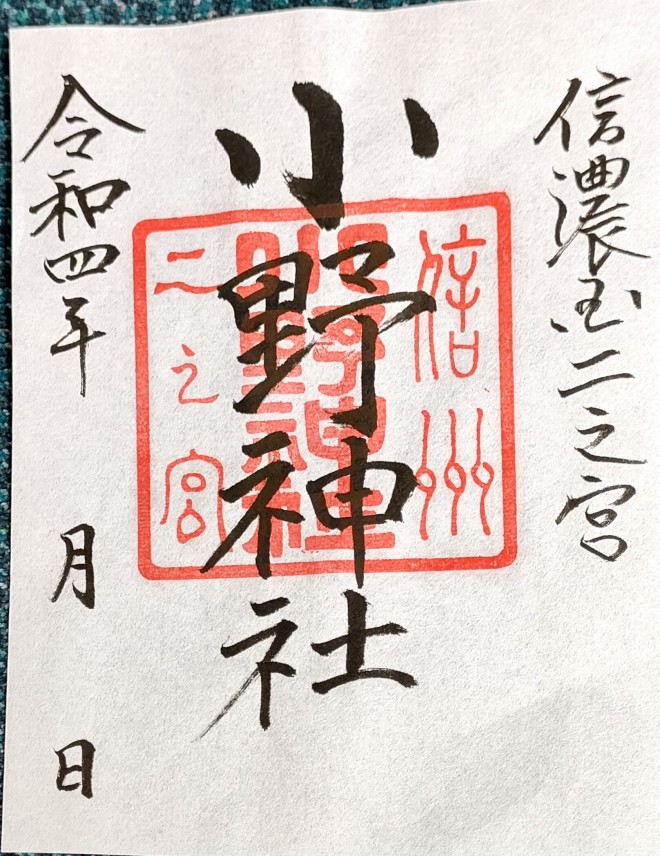 信濃国二之宮
小野神社
令和四年　月　日
信州
小野神社
二之宮